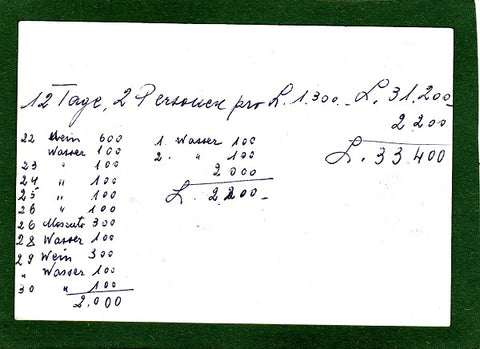 12 Tage, 2 Personen pro L. 1.300.- L. 31.200.-
2 200
L. 33 400
22 Wein 600
Wasser 100
23 " 100
24 " 100
25 " 100
26 " 100
26 Moscato 300
28 Wasser 100
29 Wein 300
" Wasser 100
30 " 100
2.000
1. Wasser 100
2. " 100
2 000
L. 2 200.-